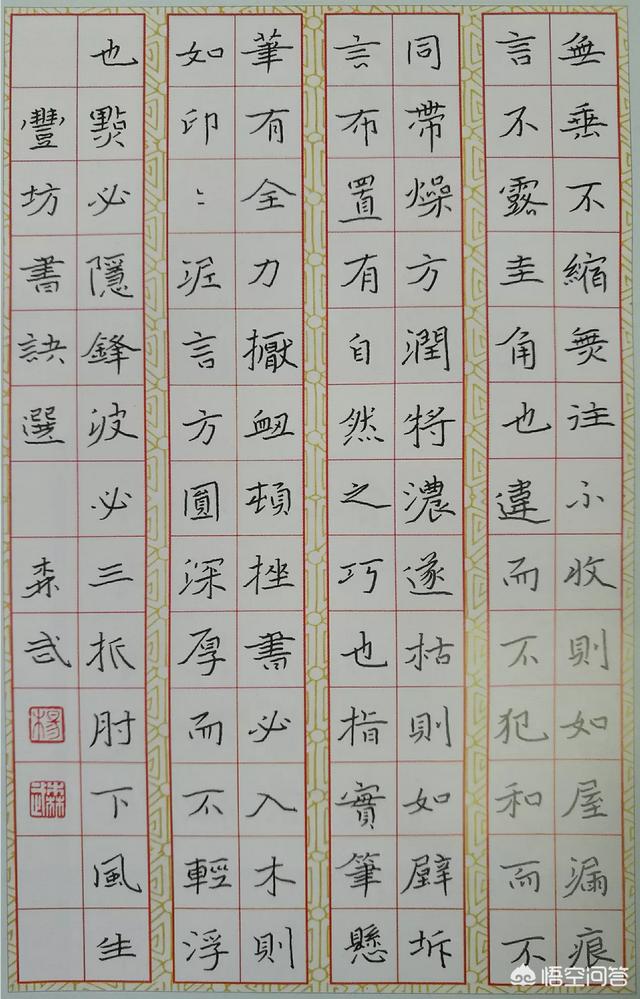 無垂不縮無往不收則如屋漏痕
言不露圭角也違而不犯和而不
同帶燥方潤將濃遂枯則如壁坼
言布置有自然之巧也指實筆懸
筆有全力擫衄頓挫書必入木則
如印〻泥言方圓深厚而不輕浮
也點必隱鋒波必三折肘下風生
豐坊書訣選 森武
悟空问答